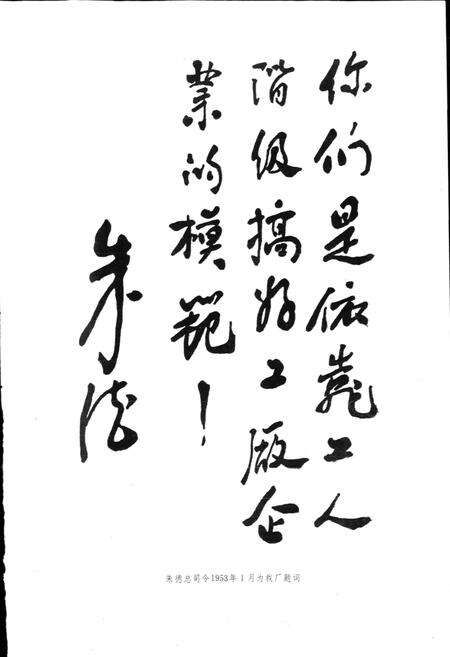 你们是依靠工人
階级搞好工厰企
業的模範！
朱德
朱德总司令1953年1月为我厂题词